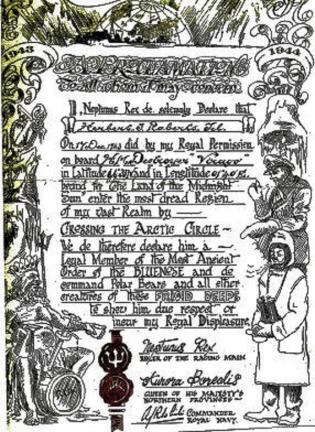 1943
1944
A PROCLAMATION
to all whom it may concern
I, Neptunus Rex do solemnly Declare that
Herbert J. Roberts
On did by my Royal Permission
on board Destroyer
in Latitude and in Longitude
bound for "The Land of the Midnight
Sun" enter the most dread Region
of my vast Realm by
CROSSING THE ARCTIC CIRCLE ~
We do therefore declare him a
Loyal Member of the Most Ancient
Order of the BLUENOSE and do
command Polar Bears and all other
creatures of these FRIGID DEEPS
to show him due respect or
incur my Royal Displeasure.
Neptunus Rex
RULER OF THE RAGING MAIN
Aurora Borealis
QUEEN OF HIS MAJESTY'S
NORTHERN PROVINCES
COMMANDER
ROYAL NAVY.